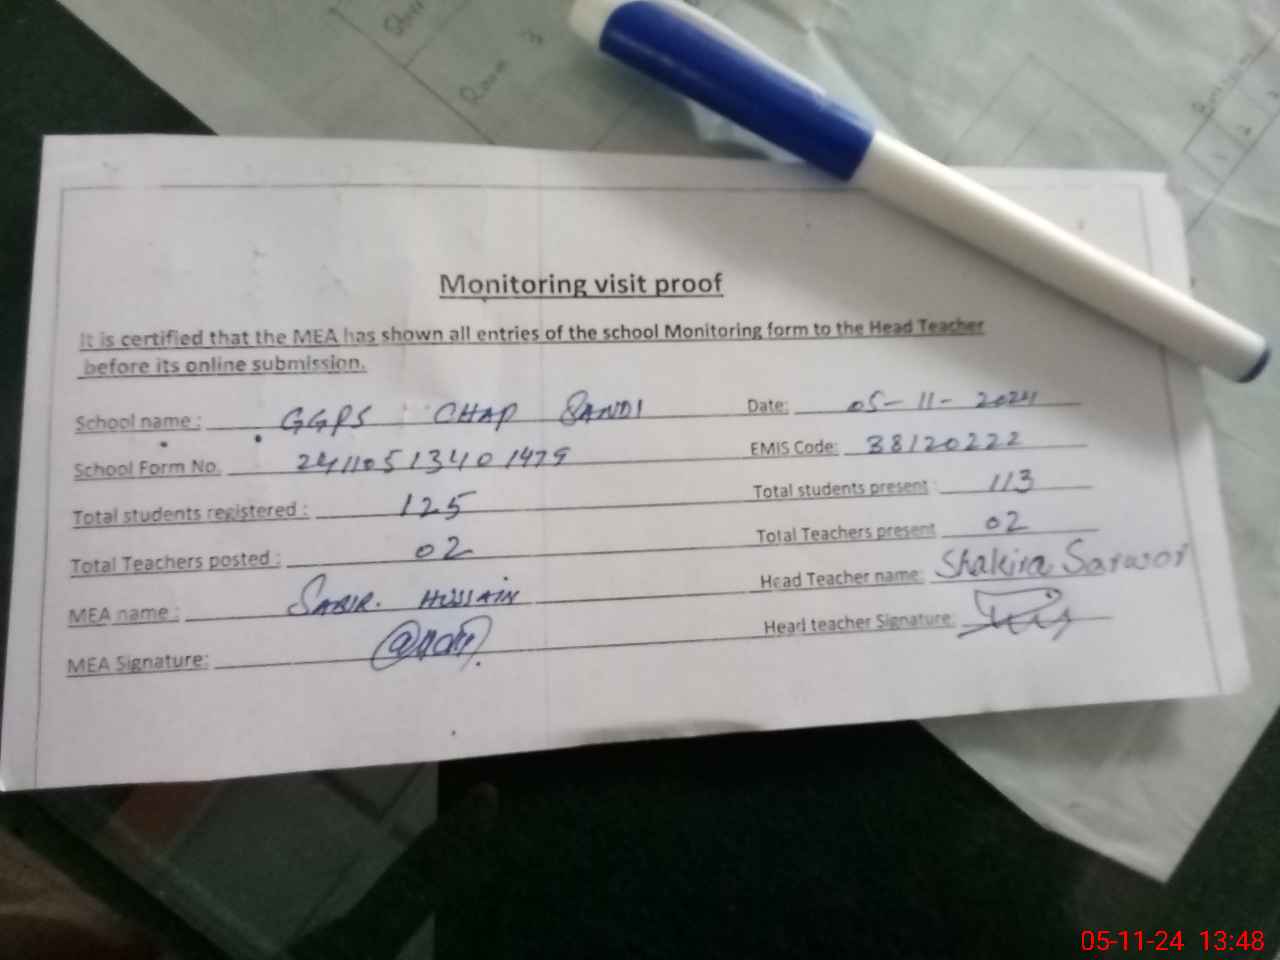 Room 3
Monitoring visit proof
It is certified that the MEA has shown all entries of the school Monitoring form to the Head Teacher
before its online submission.
School name : GGPS CHAP SANDI Date: 05-11-2024
School Form No. 24110513401479 EMIS Code: 38120222
Total students registered : 125 Total students present : 113
Total Teachers posted : 02 Total Teachers present 02
MEA name : SABIR. HUSSAIN Head Teacher name: Shakira Sarwar
MEA Signature: Head teacher Signature:
05-11-24 13:48